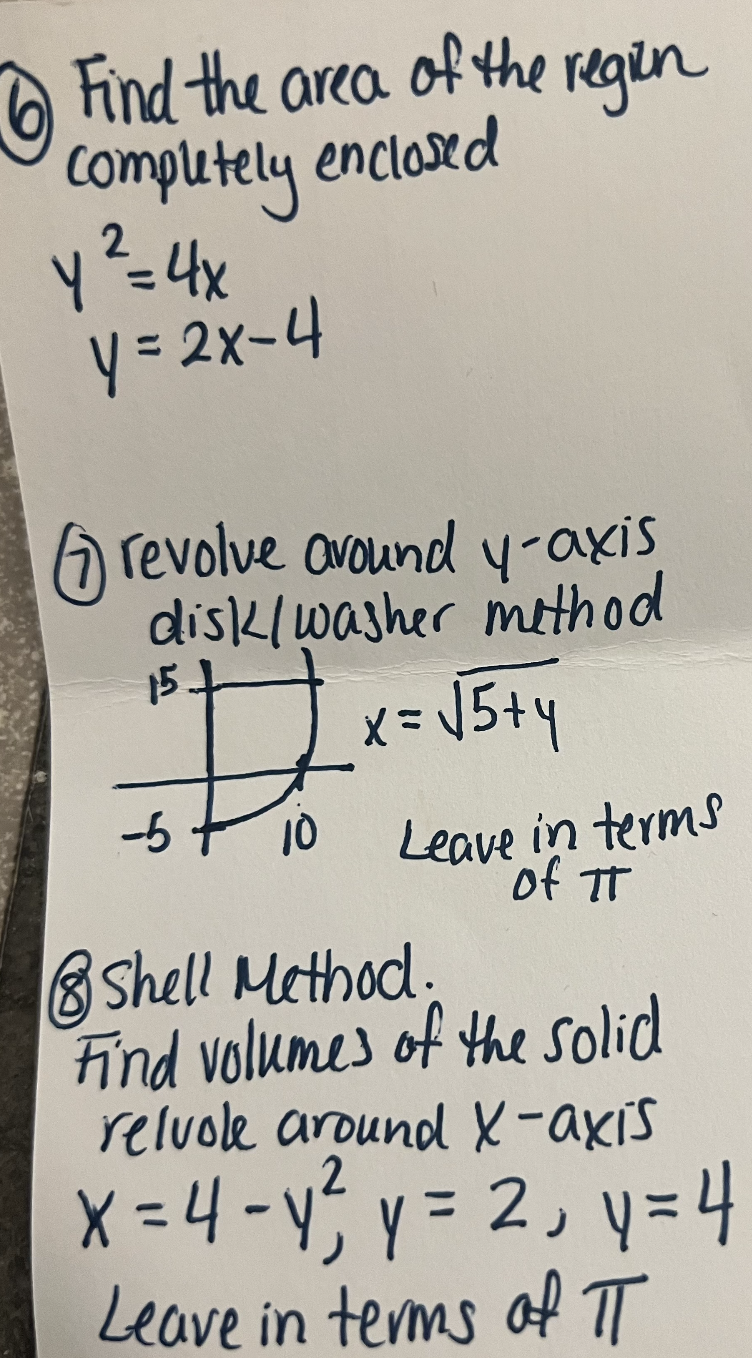 ⑥ Find the area of the region
completely enclosed
y² = 4x
y = 2x - 4
⑦ revolve around y-axis
disk/washer method
15
x = √5+y
-5
10
Leave in terms
of π
⑧ Shell Method.
Find volumes of the solid
relvole around x-axis
x = 4 - y², y = 2, y = 4
Leave in terms of π